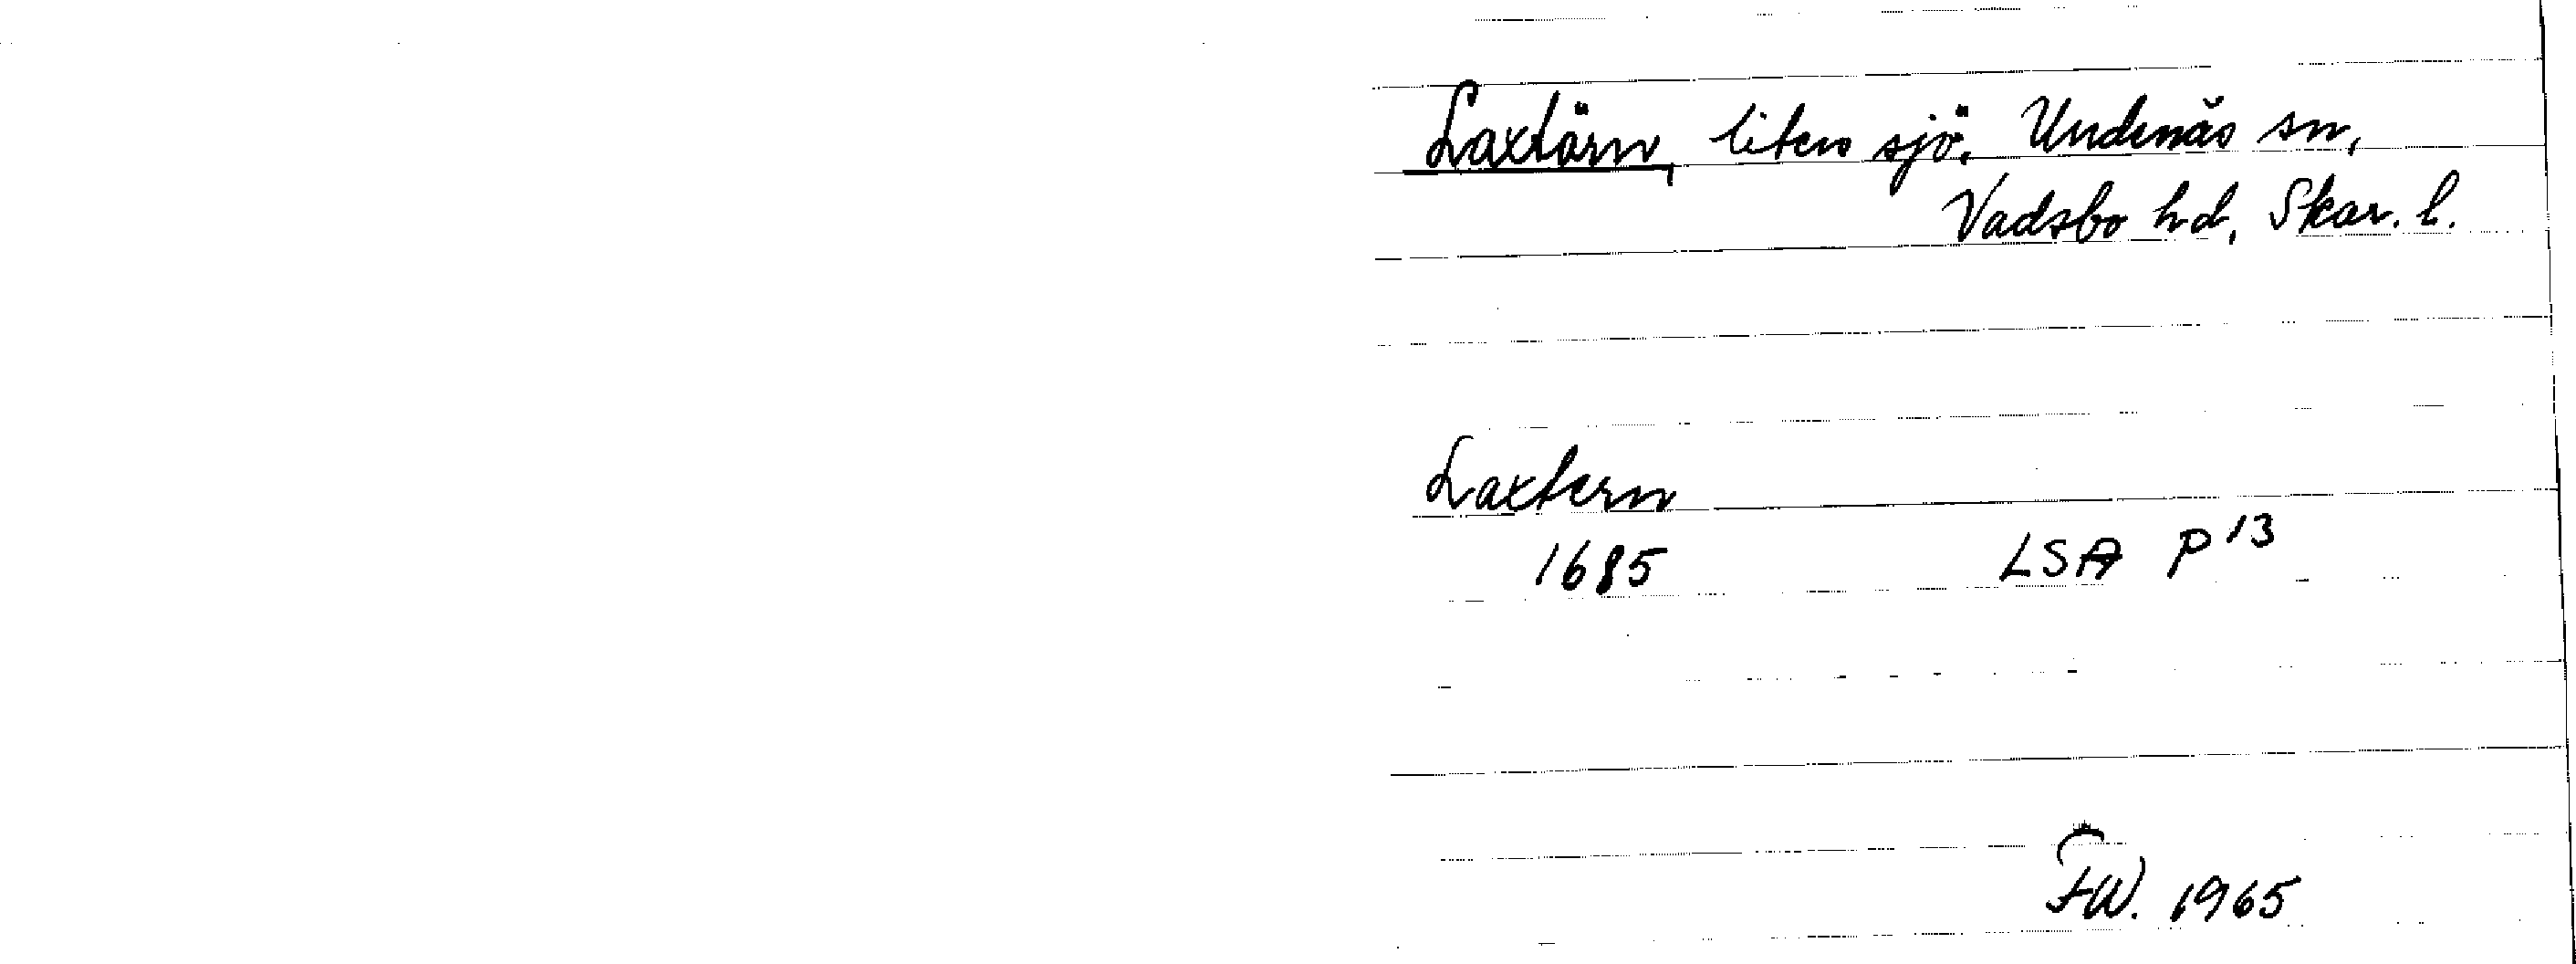 Laxtärn, liten sjö, Undenäs sn,
Vadsbo hd, Skar. l.
Laxtern
1685 LSA P 13
FW. 1965